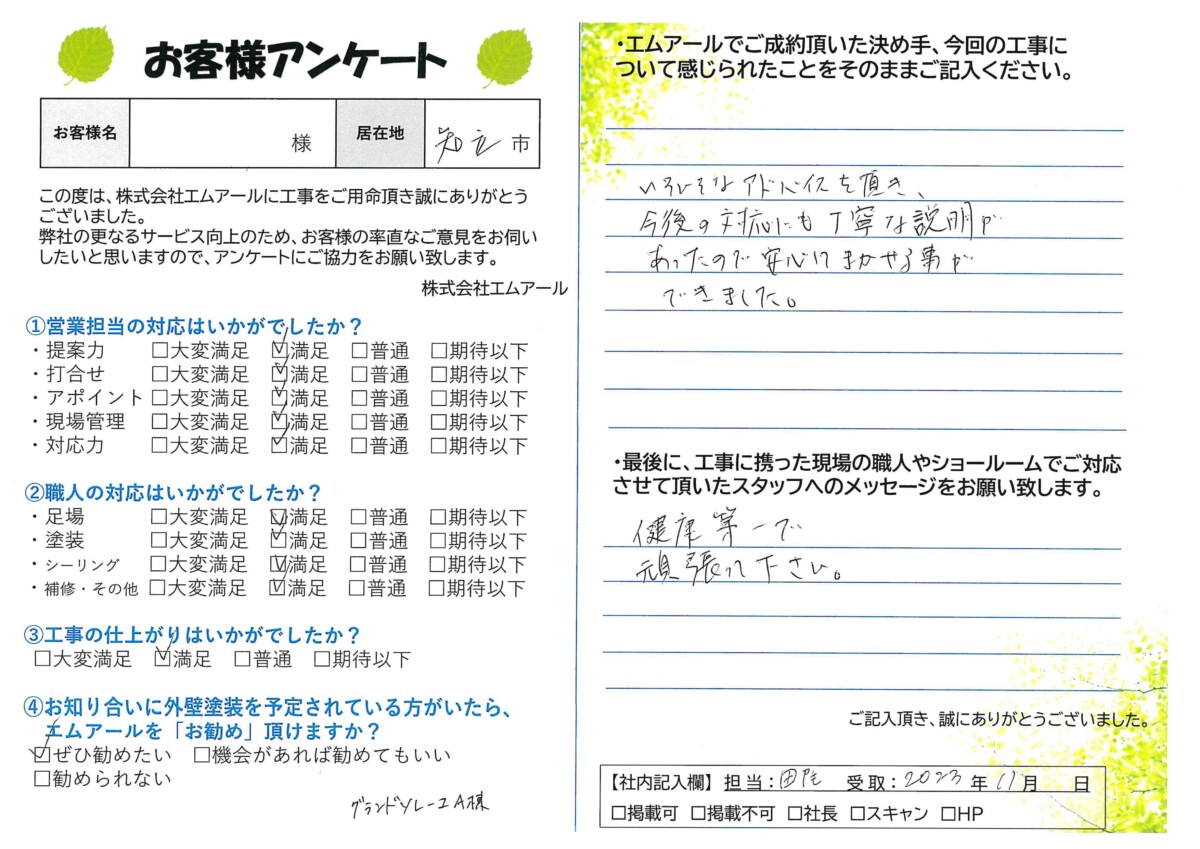 お客様アンケート
お客様名 様 居住地 知立 市
この度は、株式会社エムアールに工事をご用命頂き誠にありがとう
ございました。
弊社の更なるサービス向上のため、お客様の率直なご意見をお伺い
したいと思いますので、アンケートにご協力をお願い致します。
株式会社エムアール
①営業担当の対応はいかがでしたか？
・提案力 □大変満足 ☑満足 □普通 □期待以下
・打合せ □大変満足 ☑満足 □普通 □期待以下
・アポイント □大変満足 ☑満足 □普通 □期待以下
・現場管理 □大変満足 ☑満足 □普通 □期待以下
・対応力 □大変満足 ☑満足 □普通 □期待以下
②職人の対応はいかがでしたか？
・足場 □大変満足 ☑満足 □普通 □期待以下
・塗装 □大変満足 ☑満足 □普通 □期待以下
・シーリング □大変満足 ☑満足 □普通 □期待以下
・補修・その他 □大変満足 ☑満足 □普通 □期待以下
③工事の仕上がりはいかがでしたか？
□大変満足 ☑満足 □普通 □期待以下
④お知り合いに外壁塗装を予定されている方がいたら、
エムアールを「お勧め」頂けますか？
☑ぜひ勧めたい □機会があれば勧めてもいい
□勧められない
グランドソレーユA様
・エムアールでご成約頂いた決め手、今回の工事に
ついて感じられたことをそのままご記入ください。
いろいろなアドバイスを頂き、
今後の対応にも丁寧な説明が
あったので安心してまかせる事が
できました。
・最後に、工事に携った現場の職人やショールームでご対応
させて頂いたスタッフへのメッセージをお願い致します。
健康第一で
頑張って下さい。
ご記入頂き、誠にありがとうございました。
【社内記入欄】 担当： 受取：2023年11月 日
□掲載可 □掲載不可 □社長 □スキャン □HP